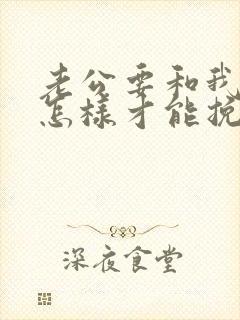 老公要和我
怎樣才能挽
深夜食堂